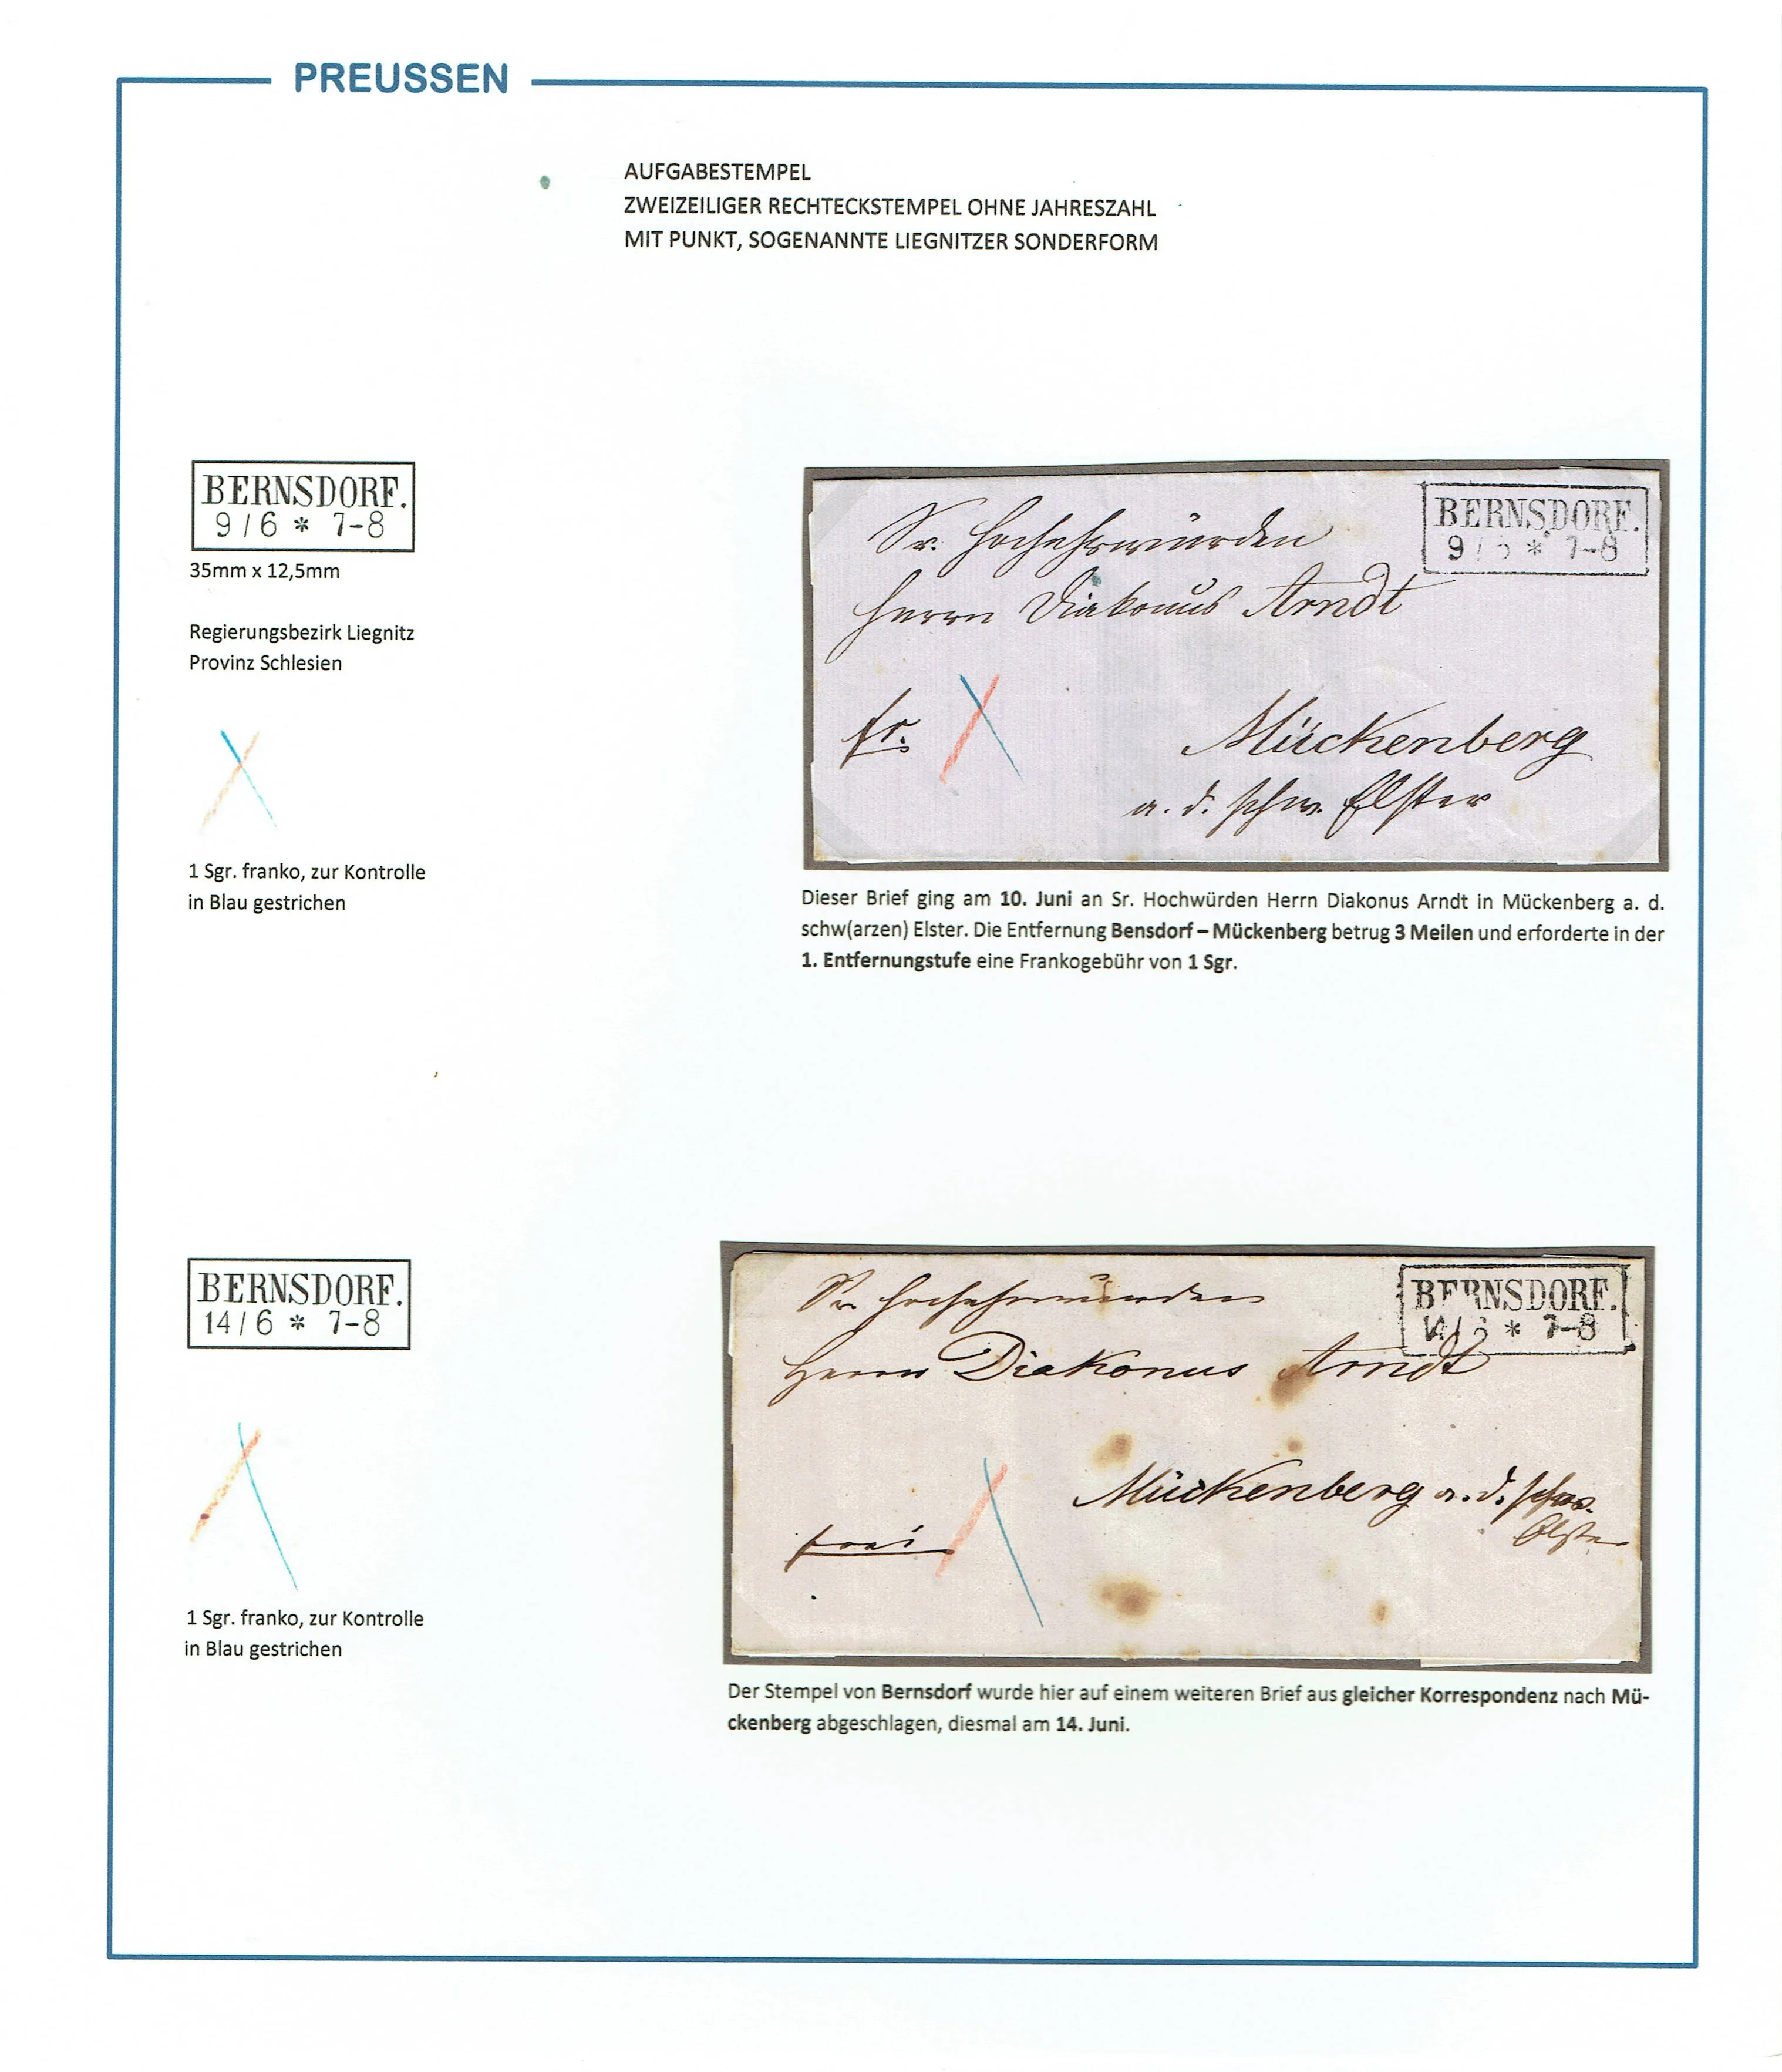 PREUSSEN
AUFGABESTEMPEL
ZWEIZEILIGER RECHTECKSTEMPEL OHNE JAHRESZAHL
MIT PUNKT, SOGENANNTE LIEGNITZER SONDERFORM
BERNSDORF.
9 / 6 * 7-8
35mm x 12,5mm
Regierungsbezirk Liegnitz
Provinz Schlesien
1 Sgr. franko, zur Kontrolle
in Blau gestrichen
BERNSDORF.
9 / 6 * 7-8
Sr. Hochehrwürden
Herrn Diakonus Arndt
fr.
Mückenberg
a. d. schw. Elster
Dieser Brief ging am 10. Juni an Sr. Hochwürden Herrn Diakonus Arndt in Mückenberg a. d.
schw(arzen) Elster. Die Entfernung Bensdorf – Mückenberg betrug 3 Meilen und erforderte in der
1. Entfernungstufe eine Frankogebühr von 1 Sgr.
BERNSDORF.
14 / 6 * 7-8
1 Sgr. franko, zur Kontrolle
in Blau gestrichen
BERNSDORF.
14 / 6 * 7-8
Sr Hochehrwürden
Herrn Diakonus Arndt
Mückenberg a. d. schw.
Elster
frei
Der Stempel von Bernsdorf wurde hier auf einem weiteren Brief aus gleicher Korrespondenz nach Mü-
ckenberg abgeschlagen, diesmal am 14. Juni.